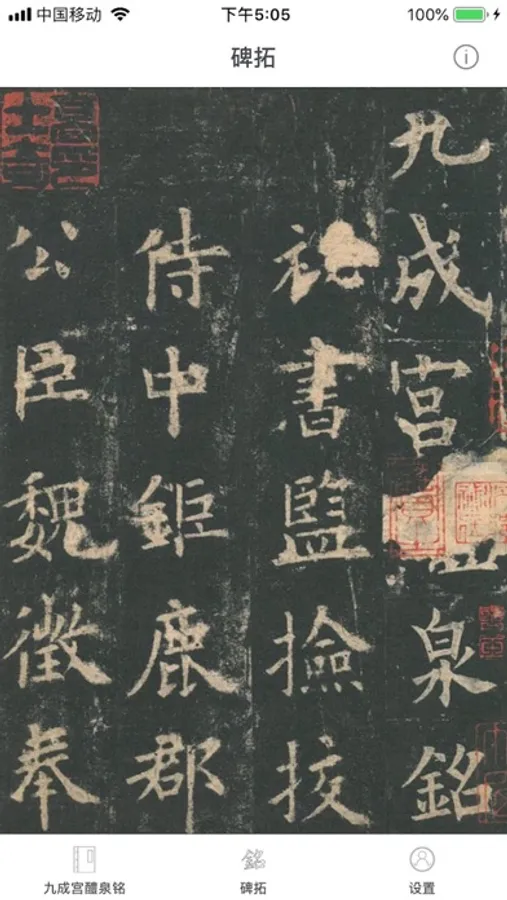 中国移动 下午5:05 100%
碑拓
九成宫
泉銘
祕書監撿挍
侍中鉅鹿郡
公臣魏徵奉
九成宫醴泉铭 碑拓 设置